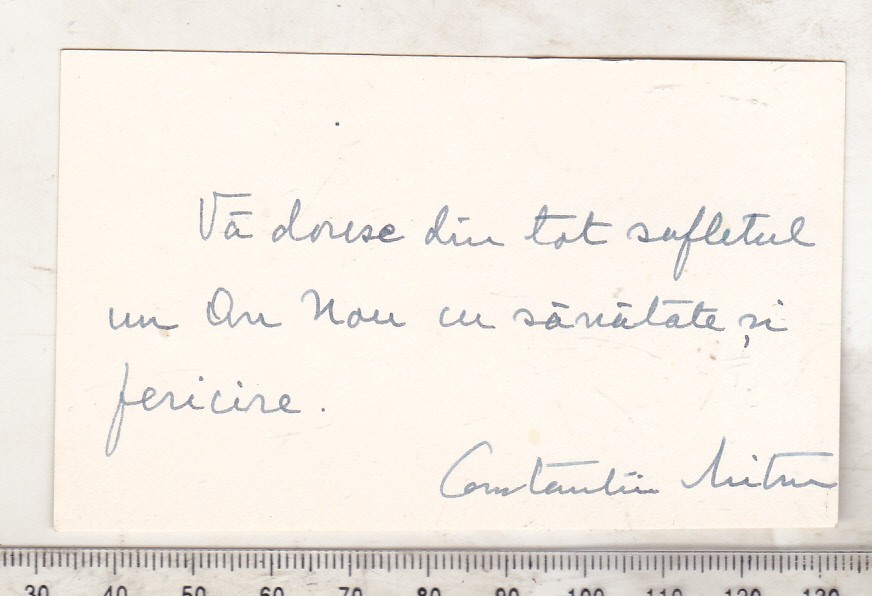 Vă doresc din tot sufletul
un An Nou cu sănătate și
fericire.
Constantin
30 40 50 60 70 80 90 100 110 120 130